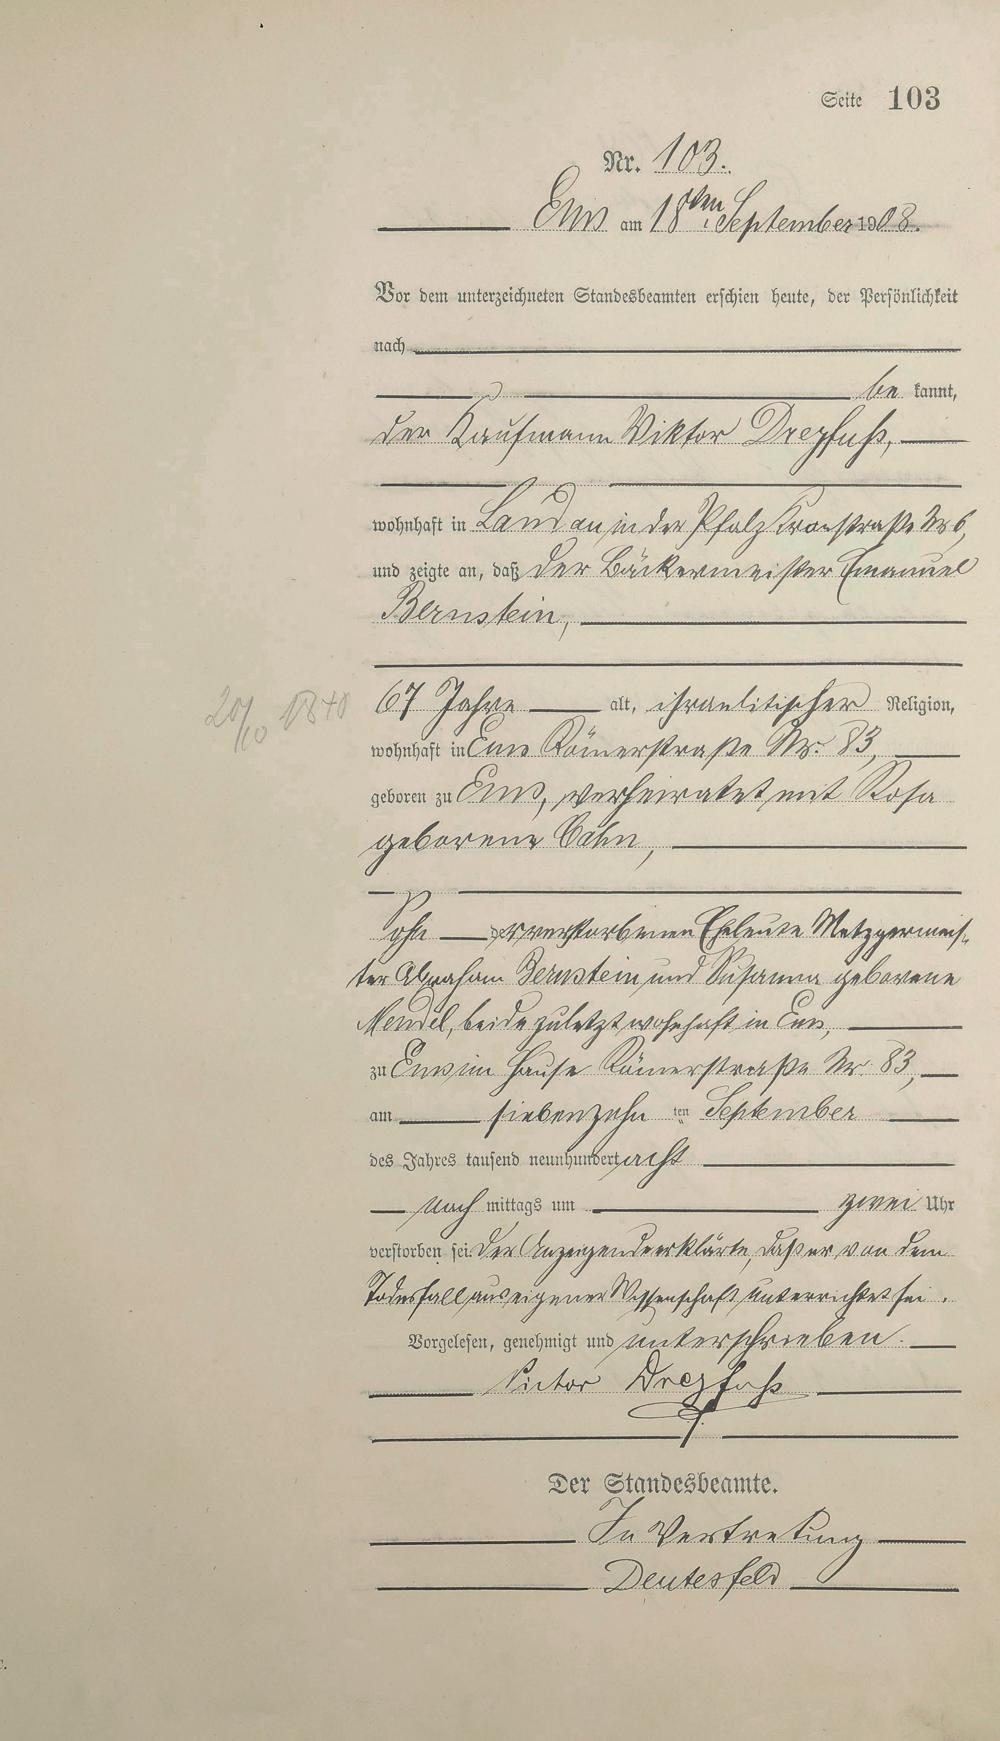 Seite 103
Nr. 103.
Ems am 18ten September 1908.
Vor dem unterzeichneten Standesbeamten erschien heute, der Persönlichkeit
nach
be kannt,
der Kaufmann Viktor Dreyfuß,
wohnhaft in Landau in der Pfalz Nr 6,
und zeigte an, daß der Bäckermeister Emanuel
Bernstein,
20/10 1840
67 Jahre alt, israelitischer Religion,
wohnhaft in Ems Römerstraße Nr. 83,
geboren zu Ems, verheiratet mit Rosa
geborene Cahn,
Sohn der verstorbenen Eheleute Metzgermeis-
ter Abraham Bernstein und Susanna geborene
Mendel, beide zuletzt wohnhaft in Ems,
zu Ems im Hause Römerstraße Nr. 83,
am siebenzehn ten September
des Jahres tausend neunhundert acht
nach mittags um zwei Uhr
verstorben sei. Der Anzeigende erklärte, daß er von dem
Todesfall aus eigener Wissenschaft unterrichtet sei.
Vorgelesen, genehmigt und unterschrieben.
Victor Dreyfuß
Der Standesbeamte.
In Vertretung
Deutesfeld